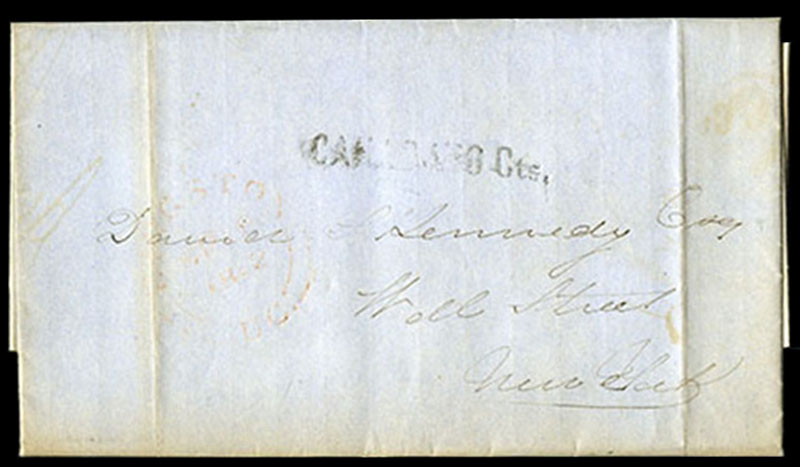 CANADA 10 Cts.
David S Kennedy Esq
Wall Street
New York